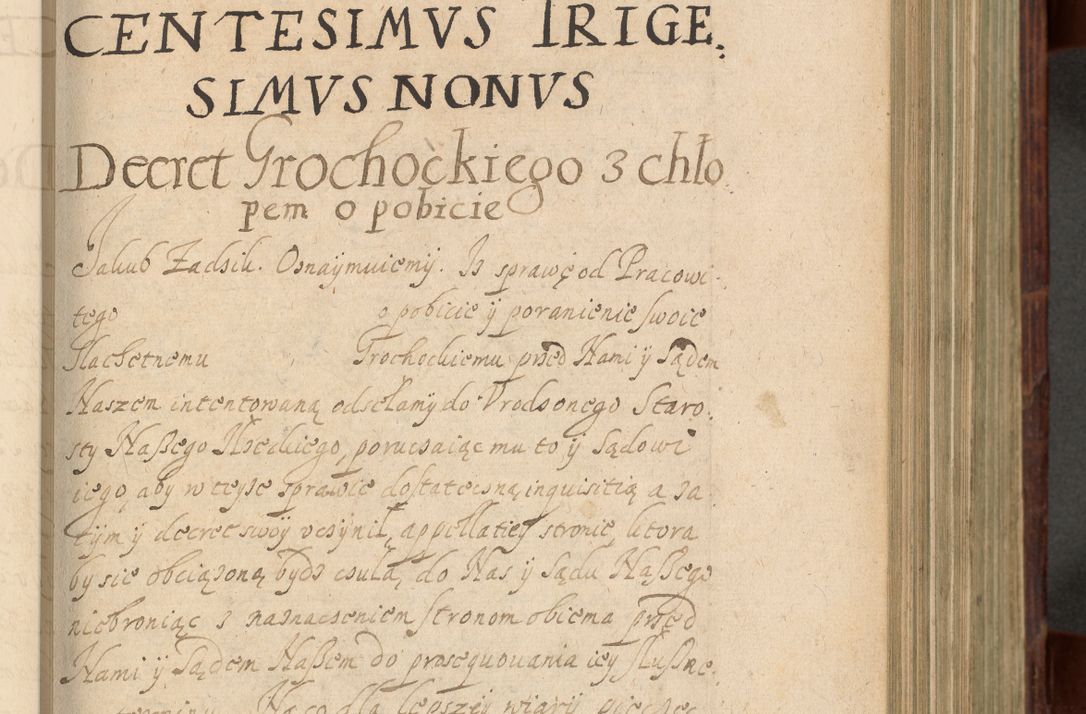 CENTESIMVS TRIGE
SIMVS NONVS
Decret Grochockiego z chło
pem o pobicie
Jakub Zadzik. Oznaymuiemÿ. Iż sprawę od Pracowi
tego o pobicie ÿ poranienie swoie
Slachetnemu Grochockiemu przed Nami ÿ Sądem
Naszem intentowaną odsełamÿ do Vrodzonego Staro
stÿ Naßego Ilzeckiego, poruczaiąc mu to ÿ Sądowi
iego, abÿ w teÿze sprawie dostateczną inquisitią a za
tÿm ÿ decret swoÿ vczÿnił, appellatieÿ stronie, ktora
bÿ sie obciązoną bÿdz czuła, do Nas ÿ Sądu Naßego
niebroniąc z naznaczeniem stronom obiema przed
Nami ÿ Sądem Naßem do prosequowania ieÿ słußne
terminu Na co dla lepszeÿ wiarÿ pieczęc